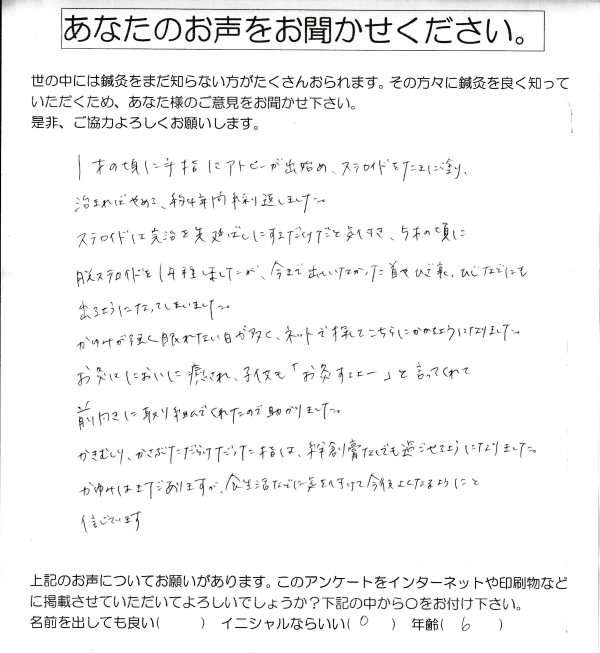 あなたのお声をお聞かせください。
世の中には鍼灸をまだ知らない方がたくさんおられます。その方々に鍼灸を良く知って
いただくため、あなた様のご意見をお聞かせ下さい。
是非、ご協力よろしくお願いします。
1才の頃に手指にアトピーが出始め、ステロイドをたまに塗り、
治まればやめて、約4年間繰り返しました。
ステロイドは完治を先延ばしにするだけだと気付き、5才の頃に
脱ステロイドを1年程しましたが、今まで出ていなかった首やひざ裏、ひじなどにも
出るようになってしまいました。
かゆみが強く眠れない日が多く、ネットで探してこちらにかかるようになりました。
お灸はにおいに癒され、子供も「お灸するよー」と言ってくれて
前向きに取り組んでくれたので助かりました。
かきむしり、かさぶただらけだった指は、絆創膏なしでも過ごせるようになりました。
かゆみはまだありますが、食生活などに気を付けて今後よくなるようにと
信じています
上記のお声についてお願いがあります。このアンケートをインターネットや印刷物など
に掲載させていただいてよろしいでしょうか？下記の中から○をお付け下さい。
名前を出しても良い(　　　) イニシャルならいい( ○ ) 年齢( 6 )